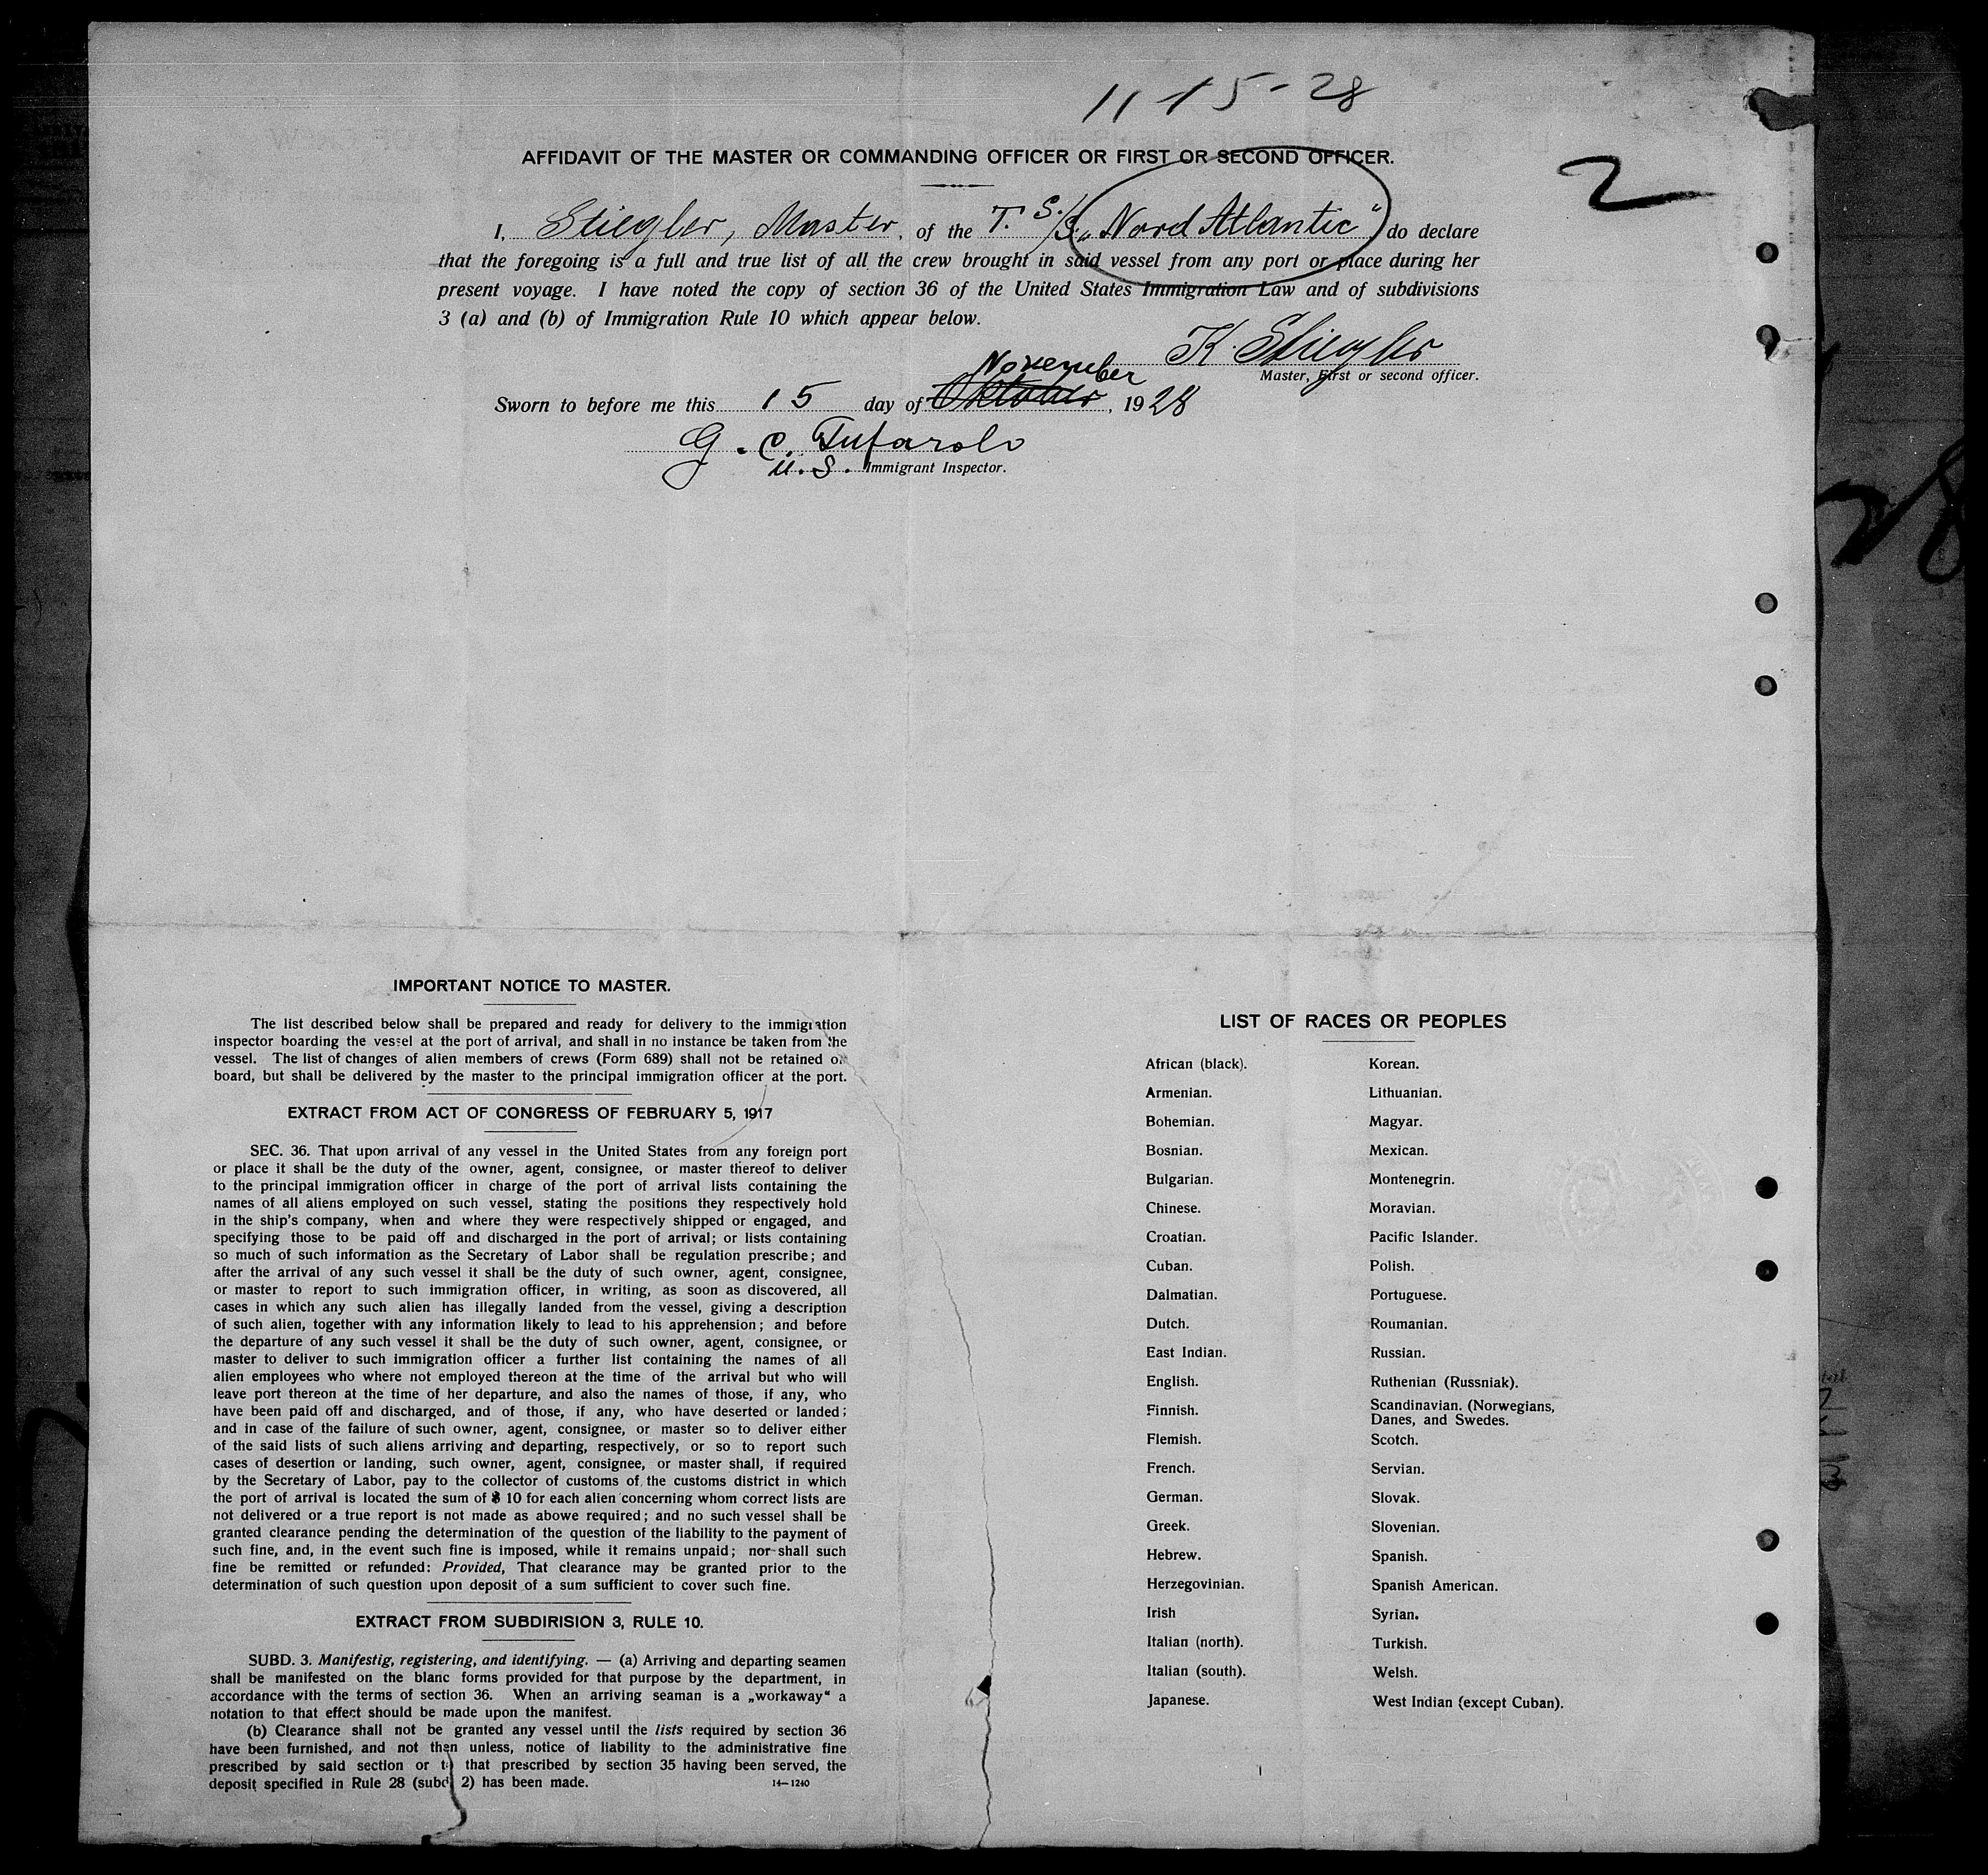 11-15-28
AFFIDAVIT OF THE MASTER OR COMMANDING OFFICER OR FIRST OR SECOND OFFICER.
2
I, Stiegler, Master, of the T. S./S. „Nord Atlantic“ do declare
that the foregoing is a full and true list of all the crew brought in said vessel from any port or place during her
present voyage. I have noted the copy of section 36 of the United States Immigration Law and of subdivisions
3 (a) and (b) of Immigration Rule 10 which appear below.
K. Stiegler
Master, First or second officer.
November
Sworn to before me this 15 day of Oktober, 1928
G. C. Tufarolo
U. S. Immigrant Inspector.
IMPORTANT NOTICE TO MASTER.
The list described below shall be prepared and ready for delivery to the immigration
inspector boarding the vessel at the port of arrival, and shall in no instance be taken from the
vessel. The list of changes of alien members of crews (Form 689) shall not be retained on
board, but shall be delivered by the master to the principal immigration officer at the port.
EXTRACT FROM ACT OF CONGRESS OF FEBRUARY 5, 1917
SEC. 36. That upon arrival of any vessel in the United States from any foreign port
or place it shall be the duty of the owner, agent, consignee, or master thereof to deliver
to the principal immigration officer in charge of the port of arrival lists containing the
names of all aliens employed on such vessel, stating the positions they respectively hold
in the ship's company, when and where they were respectively shipped or engaged, and
specifying those to be paid off and discharged in the port of arrival; or lists containing
so much of such information as the Secretary of Labor shall be regulation prescribe; and
after the arrival of any such vessel it shall be the duty of such owner, agent, consignee,
or master to report to such immigration officer, in writing, as soon as discovered, all
cases in which any such alien has illegally landed from the vessel, giving a description
of such alien, together with any information likely to lead to his apprehension; and before
the departure of any such vessel it shall be the duty of such owner, agent, consignee, or
master to deliver to such immigration officer a further list containing the names of all
alien employees who where not employed thereon at the time of the arrival but who will
leave port thereon at the time of her departure, and also the names of those, if any, who
have been paid off and discharged, and of those, if any, who have deserted or landed;
and in case of the failure of such owner, agent, consignee, or master so to deliver either
of the said lists of such aliens arriving and departing, respectively, or so to report such
cases of desertion or landing, such owner, agent, consignee, or master shall, if required
by the Secretary of Labor, pay to the collector of customs of the customs district in which
the port of arrival is located the sum of $ 10 for each alien concerning whom correct lists are
not delivered or a true report is not made as abowe required; and no such vessel shall be
granted clearance pending the determination of the question of the liability to the payment of
such fine, and, in the event such fine is imposed, while it remains unpaid; nor shall such
fine be remitted or refunded: Provided, That clearance may be granted prior to the
determination of such question upon deposit of a sum sufficient to cover such fine.
EXTRACT FROM SUBDIRISION 3, RULE 10.
SUBD. 3. Manifestig, registering, and identifying. — (a) Arriving and departing seamen
shall be manifested on the blanc forms provided for that purpose by the department, in
accordance with the terms of section 36. When an arriving seaman is a „workaway“ a
notation to that effect should be made upon the manifest.
(b) Clearance shall not be granted any vessel until the lists required by section 36
have been furnished, and not then unless, notice of liability to the administrative fine
prescribed by said section or to that prescribed by section 35 having been served, the
deposit specified in Rule 28 (subd. 2) has been made.
14—1240
LIST OF RACES OR PEOPLES
African (black).
Armenian.
Bohemian.
Bosnian.
Bulgarian.
Chinese.
Croatian.
Cuban.
Dalmatian.
Dutch.
East Indian.
English.
Finnish.
Flemish.
French.
German.
Greek.
Hebrew.
Herzegovinian.
Irish
Italian (north).
Italian (south).
Japanese.
Korean.
Lithuanian.
Magyar.
Mexican.
Montenegrin.
Moravian.
Pacific Islander.
Polish.
Portuguese.
Roumanian.
Russian.
Ruthenian (Russniak).
Scandinavian. (Norwegians,
Danes, and Swedes.
Scotch.
Servian.
Slovak.
Slovenian.
Spanish.
Spanish American.
Syrian.
Turkish.
Welsh.
West Indian (except Cuban).